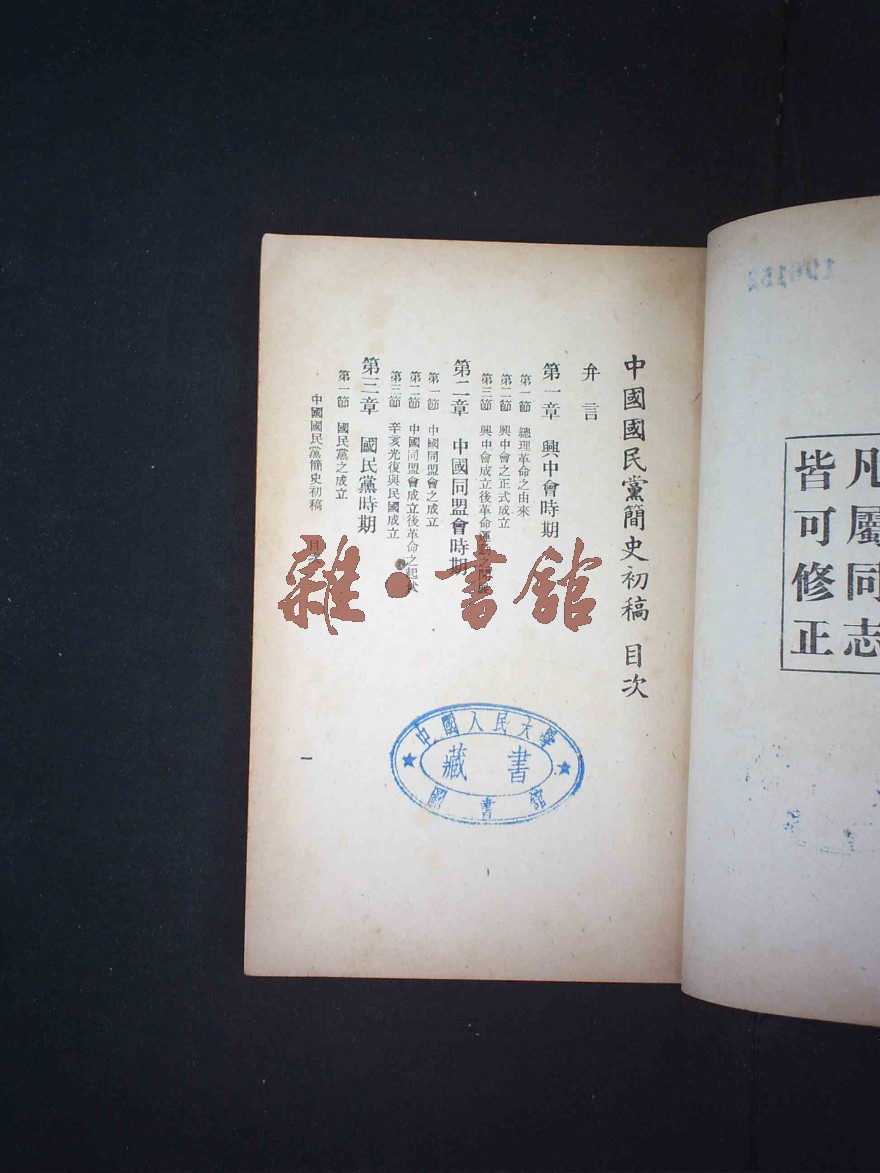 凡屬同志
皆可修正
196152
中國國民黨簡史初稿 目次
弁言
第一章 興中會時期
第一節 總理革命之由來
第二節 興中會之正式成立
第三節 興中會成立後革命運動之
第二章 中國同盟會時期
第一節 中國同盟會之成立
第二節 中國同盟會成立後革命之起
第三節 辛亥光復與民國成立
第三章 國民黨時期
第一節 國民黨之成立
中國國民黨簡史初稿 目次
一
雜·書館
中國人民大學
藏書
圖書館